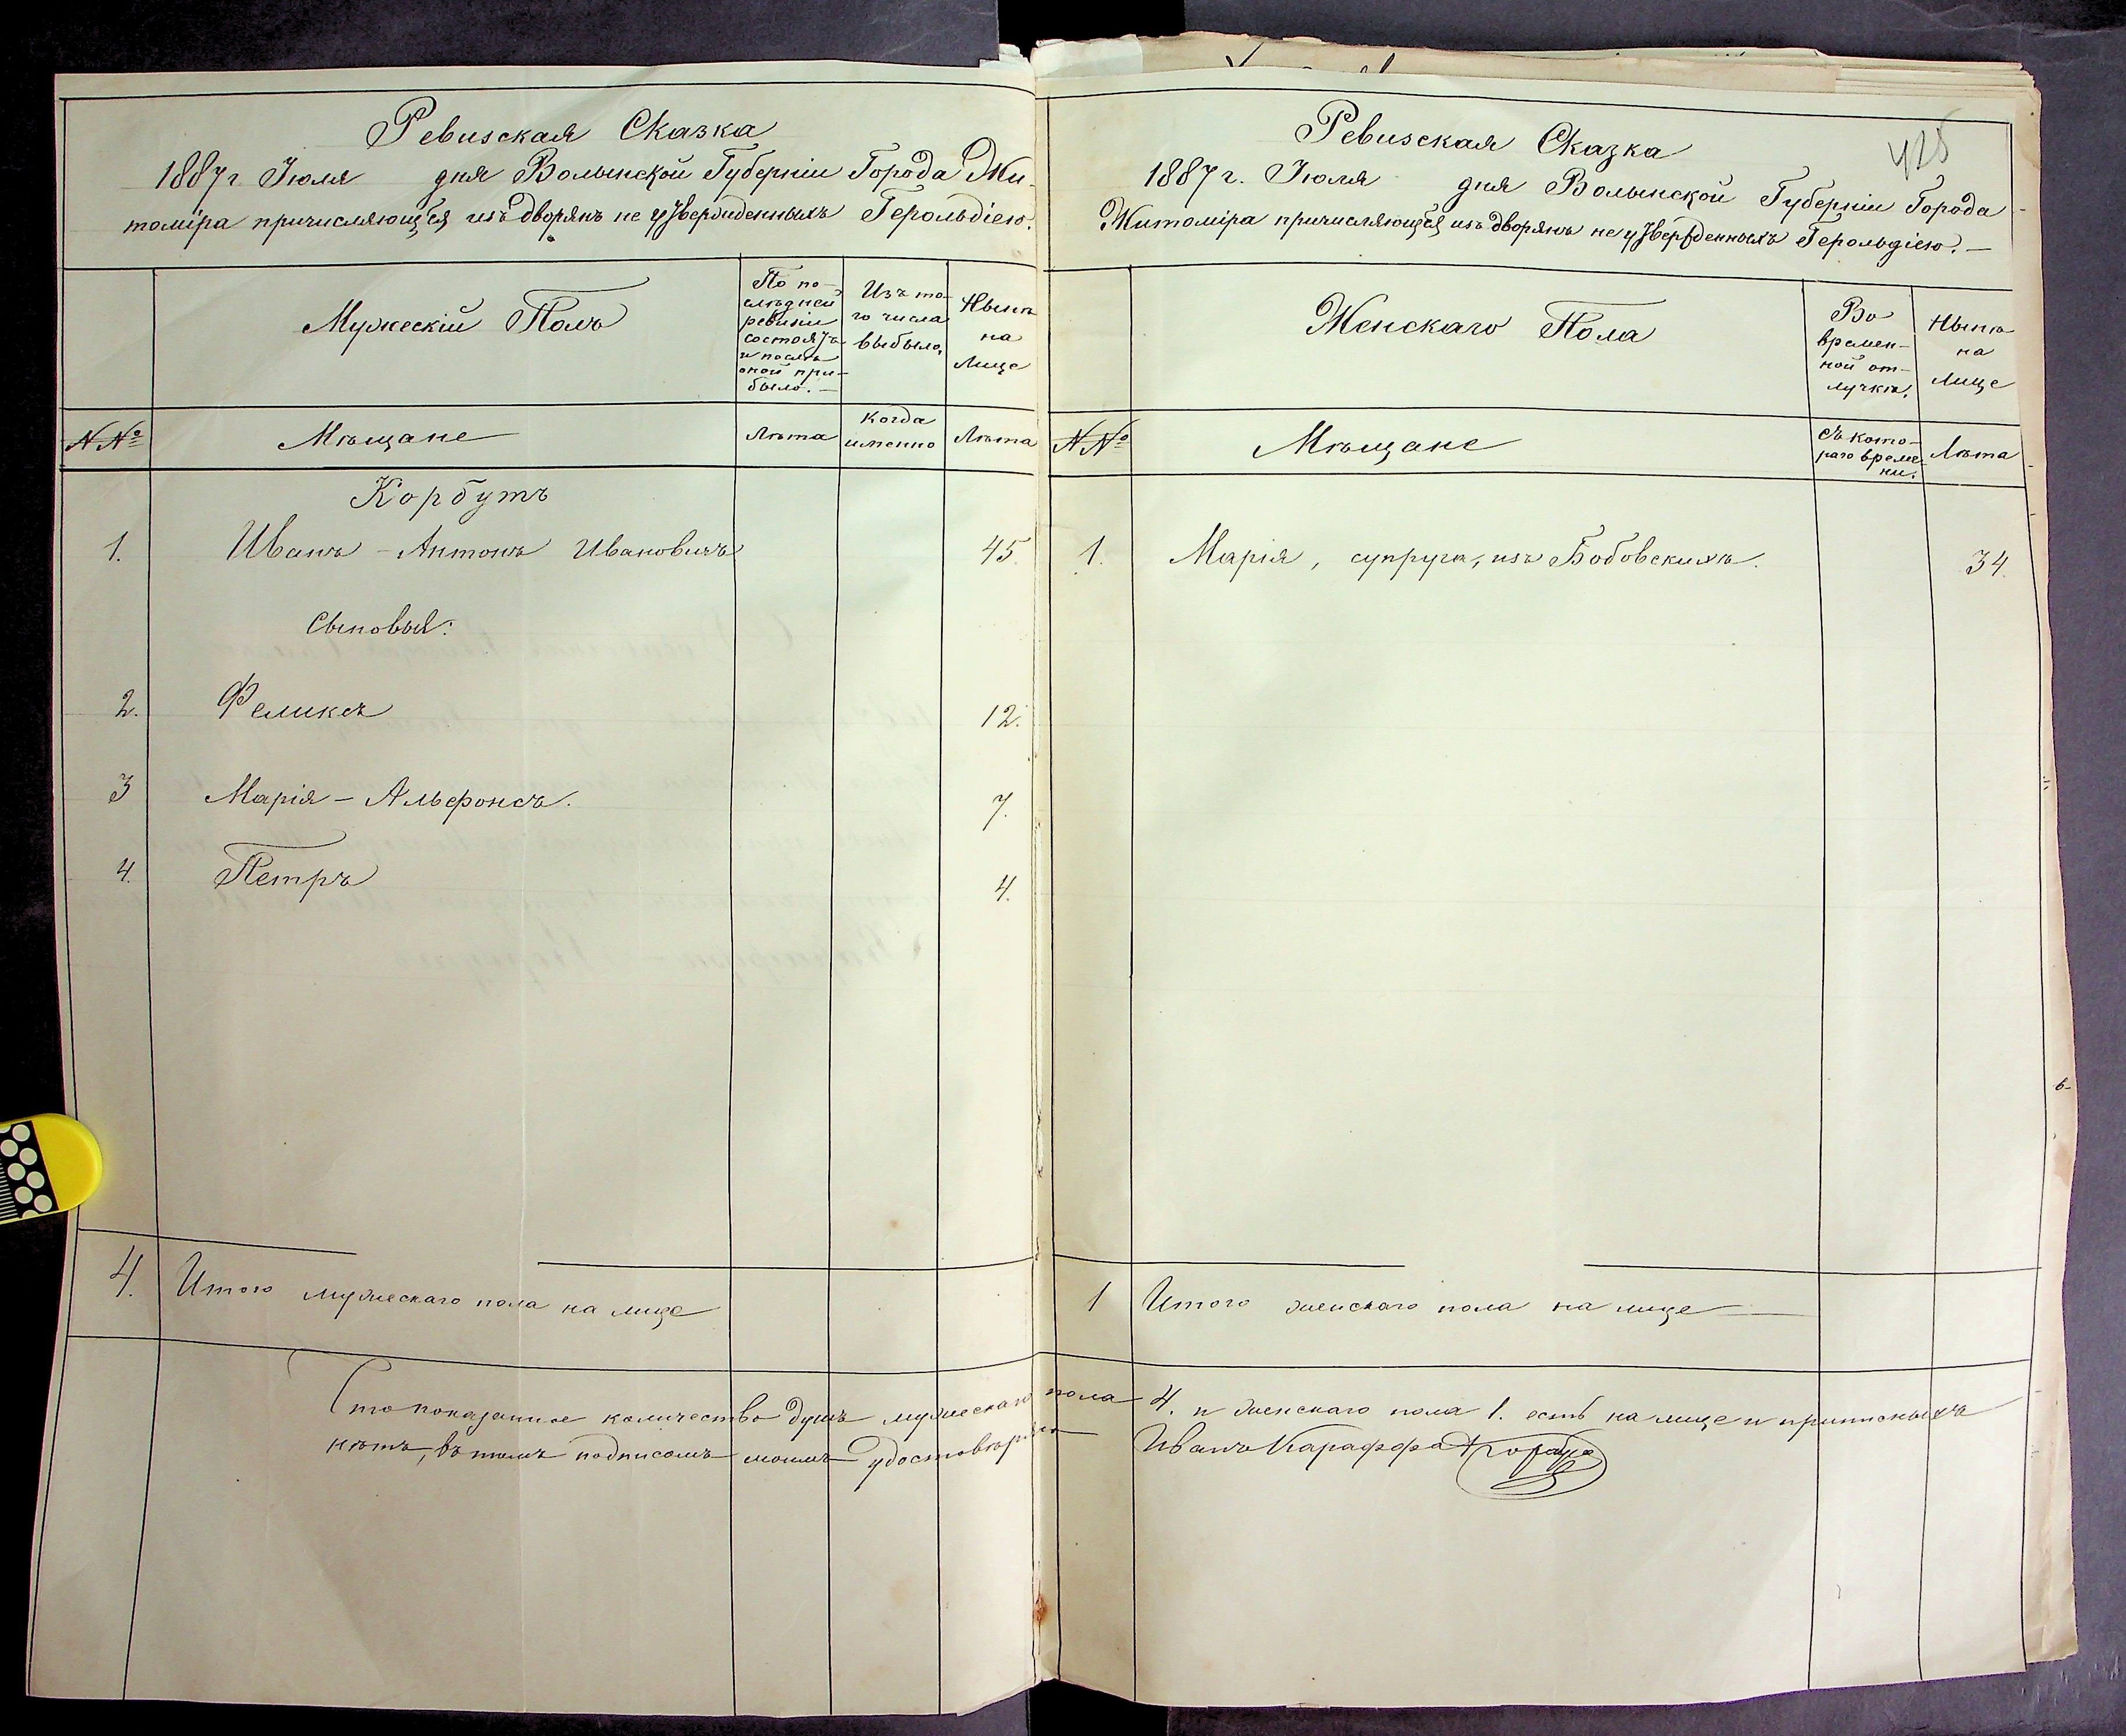 Ревизская Сказка
1887 г Іюля дня Волынской Губерніи Города Жи-
томіра причисляющейся изъ дворянъ не утвержденныхъ Герольдіею.
Мужескій Полъ
По по-
слѣдней
ревизіи
состоятъ
и послѣ
оной при-
было. —
Изъ то-
го числа
выбыло,
Нынѣ
на
лице
№№
Мѣщане
Лѣта
когда
именно
Лѣта
Корбутъ
1. Иванъ - Антонъ Ивановичъ 45.
Сыновья:
2. Феликсъ 12.
3 Марія - Альфонсъ. 7.
4. Петръ 4.
4. Итого мужескаго пола на лице
Ревизская Сказка
425
1887 г. Іюля дня Волынской Губерніи Города
Житоміра причисляющейся изъ дворянъ не утвержденныхъ Герольдіею. —
Женскаго Пола
Во
времен-
ной от-
лучкѣ.
Нынѣ
на
лице
№№
Мѣщане
Съ кото-
раго време-
ни.
Лѣта
1. Марія, супруга, изъ Бобовскихъ. 34.
1 Итого женскаго пола на лице
Что показанное количество душъ мужескаго пола 4. и женскаго пола 1. есть на лице и приписныхъ
нѣтъ, въ томъ подписомъ моимъ удостовѣряю Иванъ Караффа Корбутъ